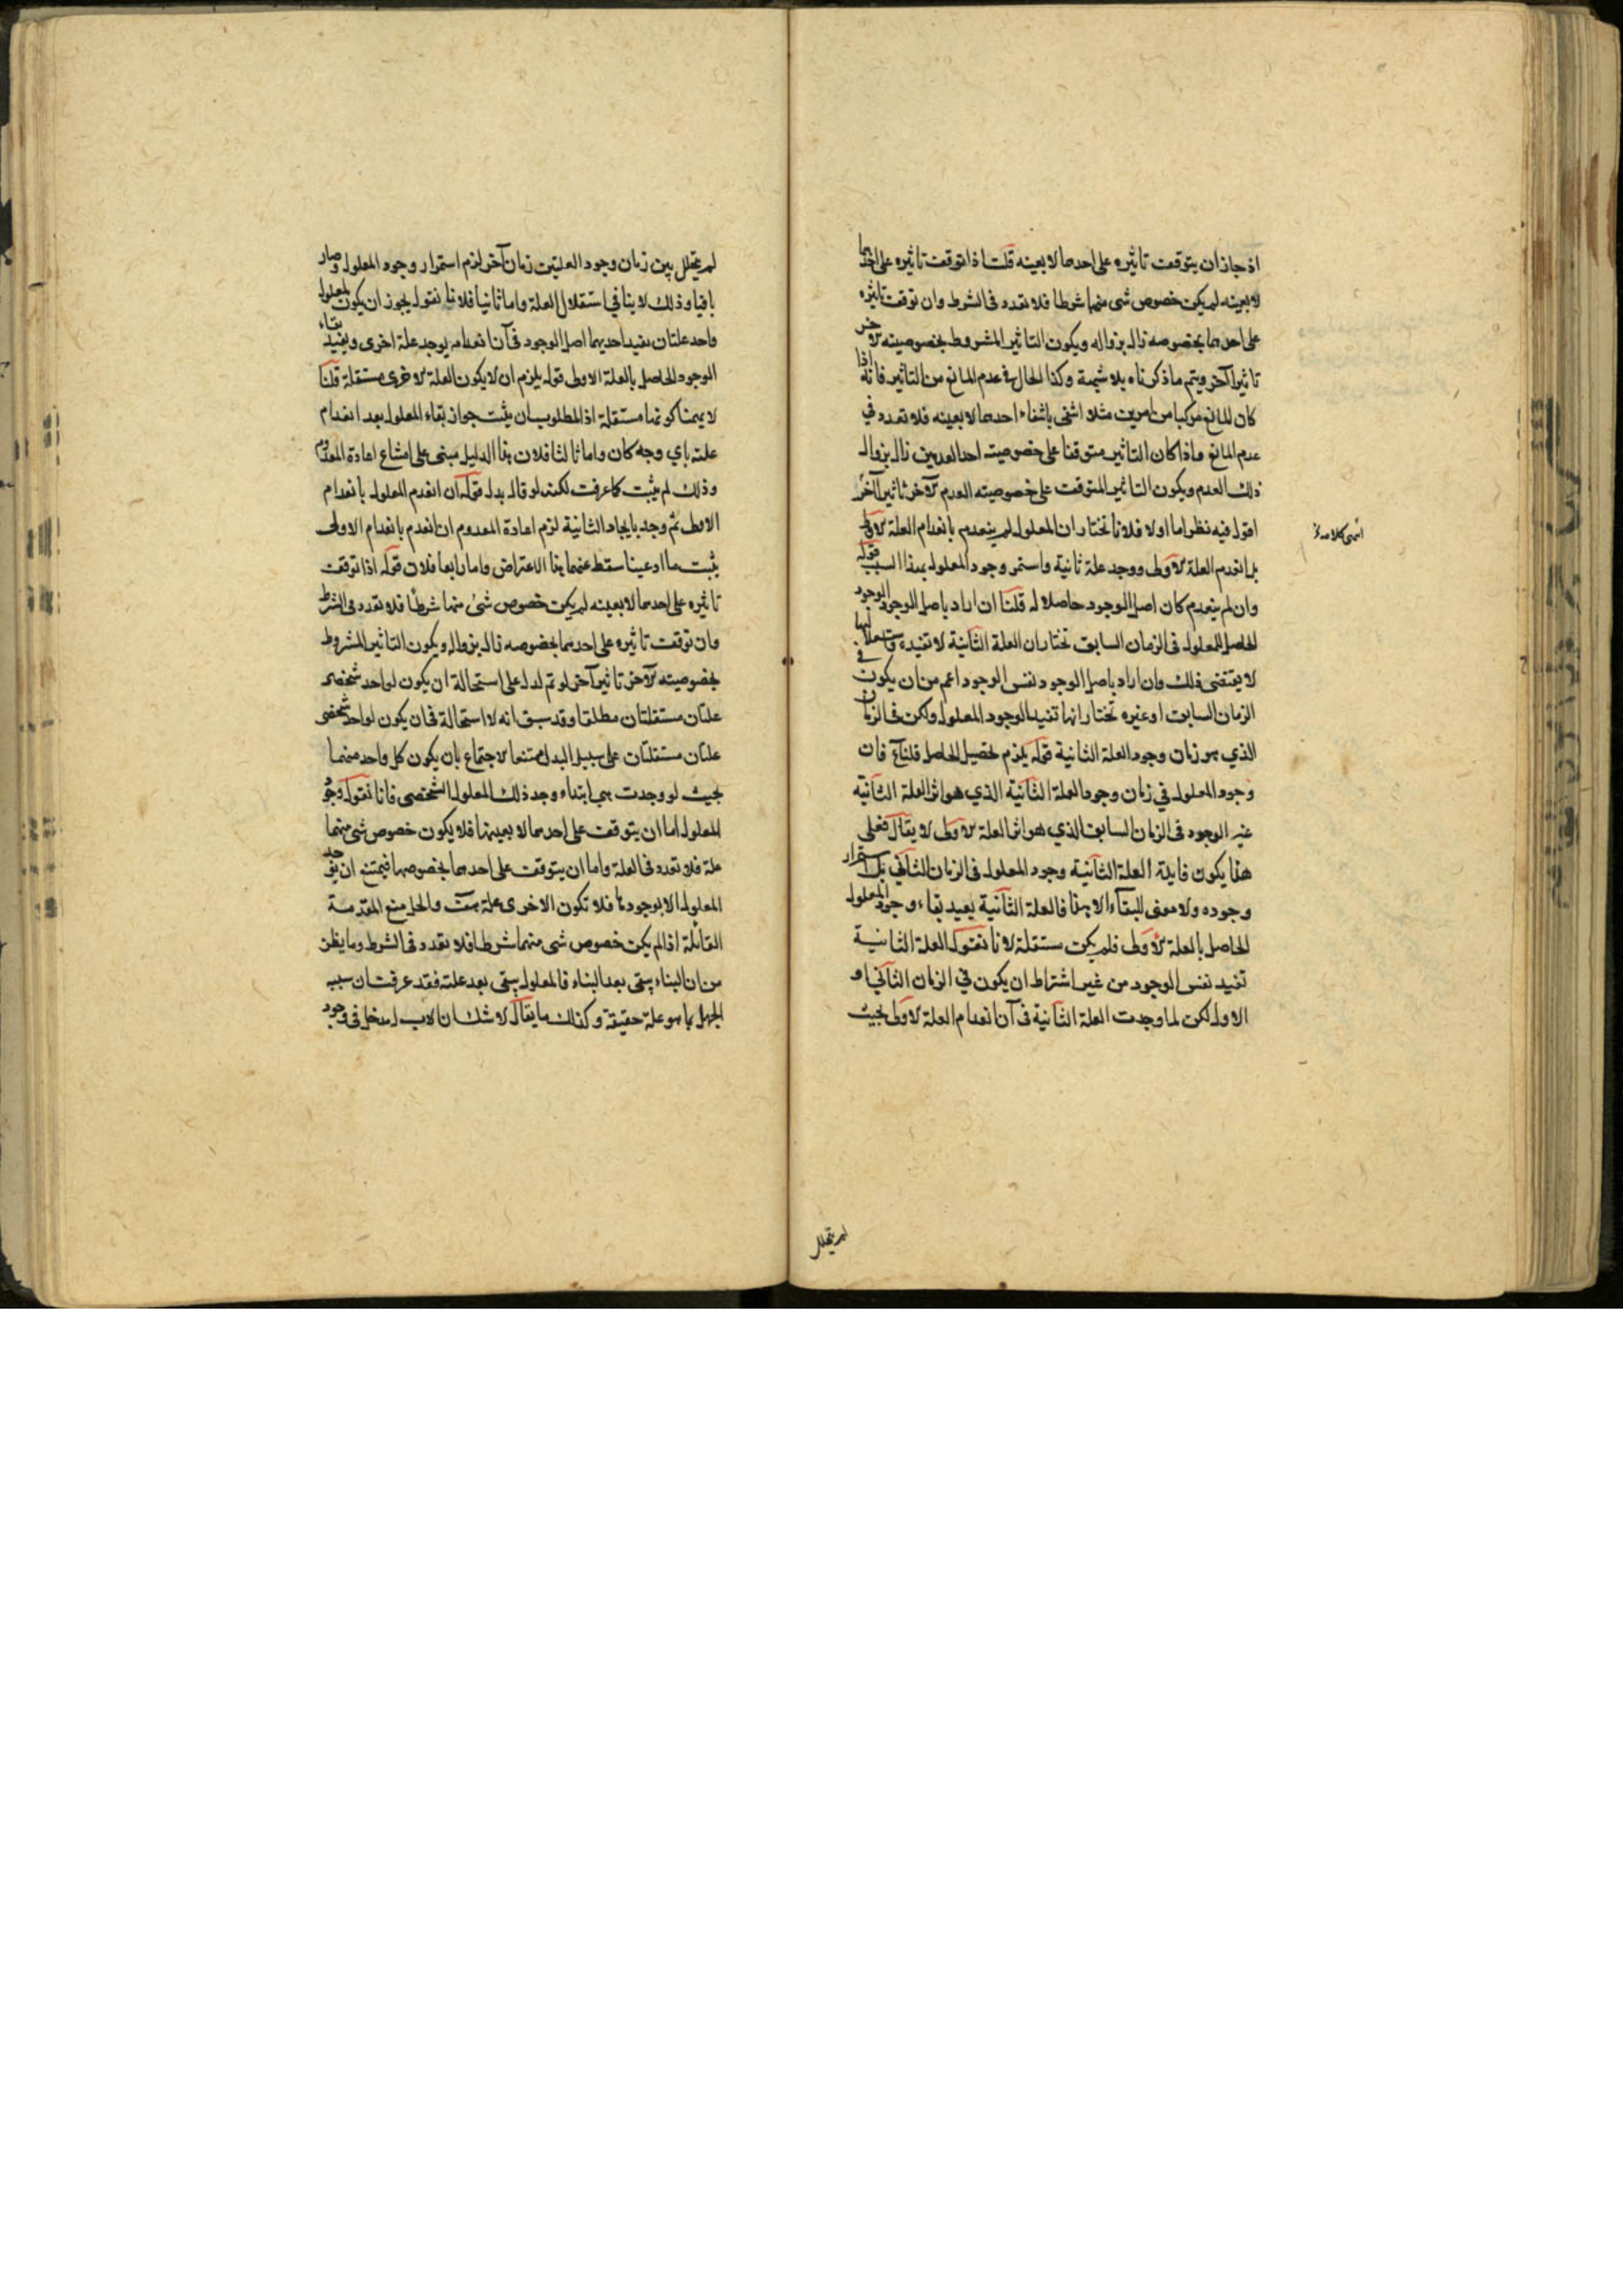 اذ جاز ان يتوقف تاثيره على احدهما لا بعينه قلت اذا توقف تاثيره على احدهما
لا بعينه لم يكن خصوص شى منهما شرطا فلا تعدد فى الشرط وان توقف تاثيره
على احدهما بخصوصه زال بزواله ويكون التاثير المشروط بخصوصيته الاخر
تاثيرا آخر ويتم ما ذكرناه بلا شبهة وكذا الحال فى عدم المانع من التاثير فانه اذا
كان المانع مركبا من امرين مثلا انتفى بانتفاء احدهما لا بعينه فلا تعدد في
عدم المانع واذا كان التاثير متوقفا على خصوصيته احد العدمين زال بزوال
ذلك العدم ويكون التاثير المتوقف على خصوصيته العدم الآخر تاثيرا آخر
انتهى كلامه
اقول فيه نظر اما اولا فلانا نختار ان المعلول لم ينعدم بانعدام العلة الاولى
بل انعدم العلة الاولى ووجد علة ثانية واستمر وجود المعلول بهذا السبب قوله
وان لم ينعدم كان اصل الوجود حاصلا له قلنا ان اراد باصل الوجود الوجود
الحاصل للمعلول فى الزمان السابق نختار ان العلة الثانية لا تفيده واستقلالها
لا يقتضى ذلك وان اراد باصل الوجود نفس الوجود اعم من ان يكون فى
الزمان السابق او غيره نختار انها تفيد الوجود المعلول ولكن فى الزمان
الذي هو زمان وجود العلة الثانية قوله يلزم تحصيل الحاصل قلنا فان
وجود المعلول في زمان وجود العلة الثانية الذي هو اثر العلة الثانية
غير الوجود فى الزمان السابق الذي هو اثر العلة الاولى لا يقال فعلى
هذا يكون فايدة العلة الثانية وجود المعلول فى الزمان الثاني بل استمرار
وجوده ولا معنى للبقاء الا هذا فالعلة الثانية يفيد بقاء وجود المعلول
الحاصل بالعلة الاولى فلم يكن مستقلة لانا نقول العلة الثانية
تفيد نفس الوجود من غير اشتراط ان يكون في الزمان الثاني او
الاول لكن لما وجدت العلة الثانية فى آن انعدام العلة الاولى بحيث
لم يتخلل
لم يتخلل بين زمان وجود العلتين زمان آخر لزم استمرار وجود المعلول وصار
باقيا وذلك لا ينافي استقلال العلة واما ثانيا فلانا نقول يجوز ان يكون لمعلول
واحد علتان يفيد احديهما اصل الوجود فى آن انعدامه يوجد علة اخرى ويفيد بقاء
الوجود الحاصل بالعلة الاولى قوله يلزم ان لا يكون العلة الاخرى مستقلة قلنا
لا يهمنا كونها مستقلة اذ المطلوب ان يثبت جواز بقاء المعلول بعد انعدام
علته باي وجه كان واما ثالثا فلان هذا الدليل مبنى على امتناع اعادة المعدوم
وذلك لم يثبت كما عرفت لكنه لو قال بدل قوله ان انعدم المعلول بانعدام
الاولى ثم وجد بايجاد الثانية لزم اعادة المعدوم ان انعدم بانعدام الاولى
يثبت ما ادعينا سقط عنهما هذا الاعتراض واما رابعا فلان قوله اذا توقف
تاثيره على احدهما لا بعينه لم يكن خصوص شئ منهما شرطا فلا تعدد فى الشرط
وان توقف تاثيره على احدهما بخصوصه زال بزواله ويكون التاثير المشروط
بخصوصيته الآخر تاثيرا آخر لو تم لدل على استحالة ان يكون لواحد شخصى
علتان مستقلتان مطلقا وقد سبق انه لا استحالة فى ان يكون لواحد شخصى
علتان مستقلتان على سبيل البدل ممتنعا الاجتماع بان يكون كل واحد منهما
بحيث لو وجدت هي ابتداء وجد ذلك المعلول الشخصى فانا نقول وجود
المعلول اما ان يتوقف على احدهما لا بعينها فلا يكون خصوص شى منهما
علة فلا تعدد فى العلة واما ان يتوقف على احدهما بخصوصها فيمتنع ان يوجد
المعلول الا بوجودها فلا تكون الاخرى علة والحل منع المقدمة
القائلة اذا لم يكن خصوص شى منهما شرطا فلا تعدد فى الشرط وما يظن
من ان البناء يبقى بعد البناء فالمعلول يبقى بعد علته فقد عرفت ان سببه
الجهل بما هو علة حقيقة وكذلك ما يقال لا شك ان الاب له مدخل فى وجود